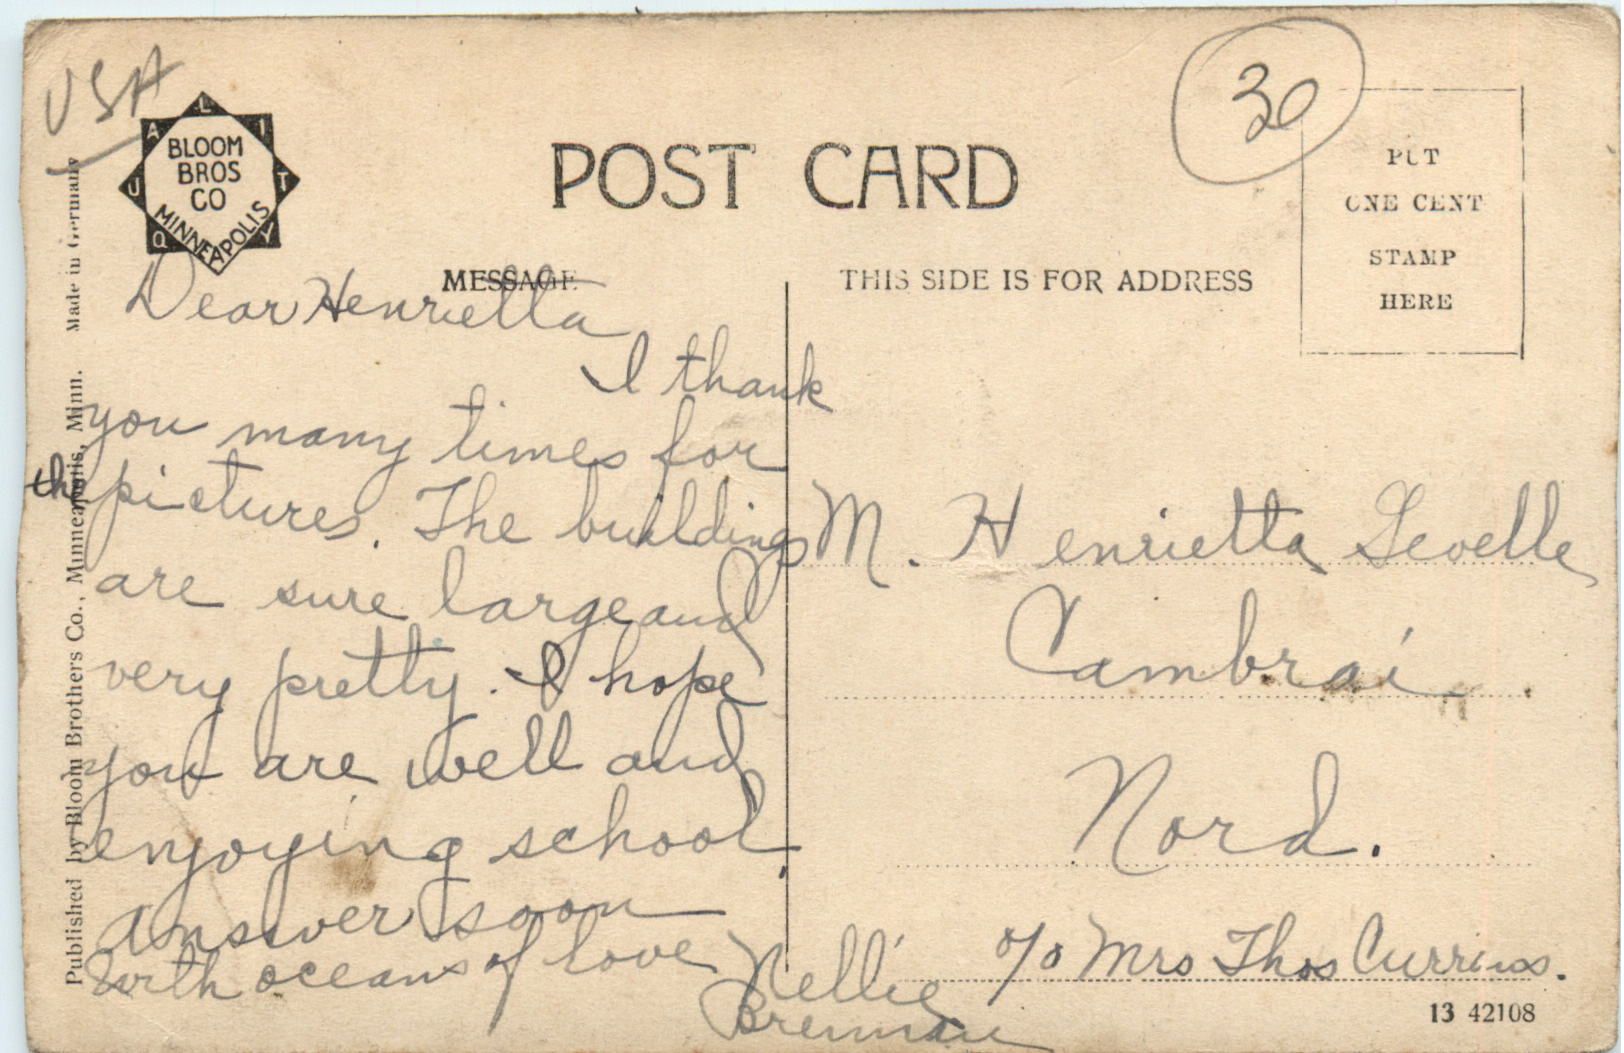 USA
QUALITY
BLOOM
BROS
CO
MINNEAPOLIS
POST CARD
30
PUT
ONE CENT
STAMP
HERE
MESSAGE
THIS SIDE IS FOR ADDRESS
Dear Henrietta
I thank
you many times for
the pictures. The buildings
are sure large and
very pretty. I hope
you are well and
enjoying school.
Answer soon
With oceans of love
Nellie
Brennan
M. Henrietta
Cambrai
Nord.
c/o Mrs Thos
13 42108
Published by Bloom Brothers Co., Minneapolis, Minn. Made in Germany